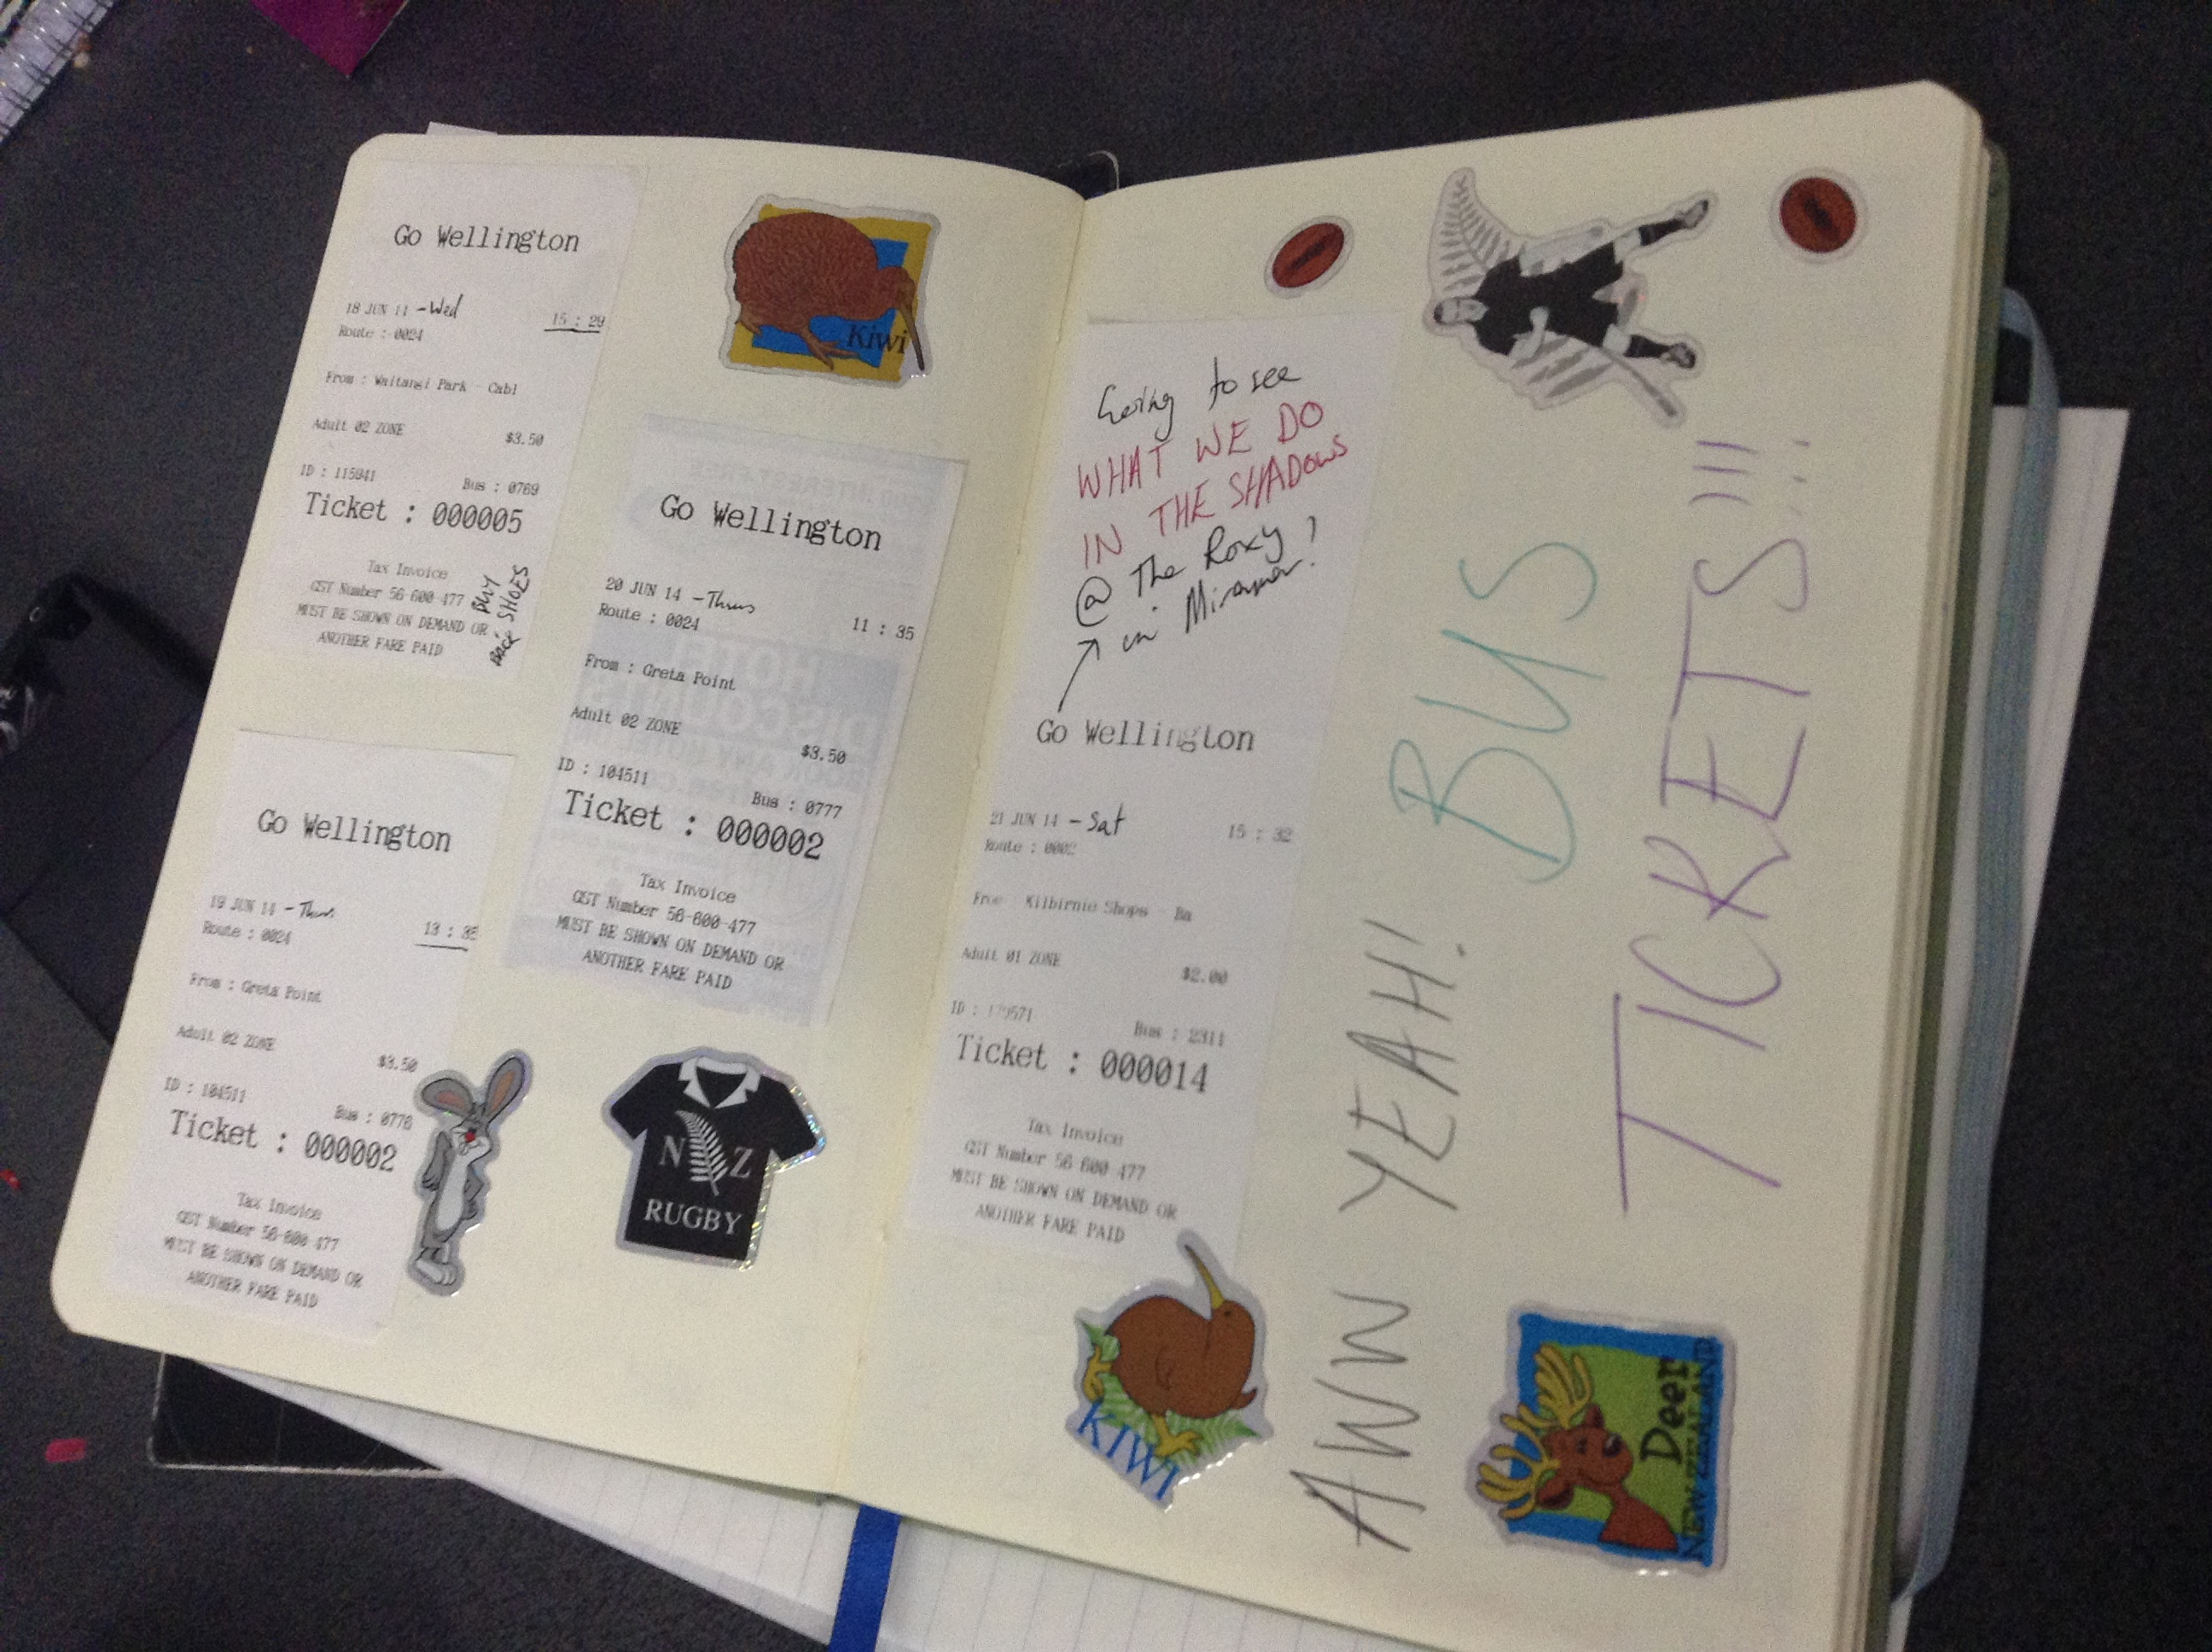 Go Wellington
18 JUN 14 - Wed 15 : 29
Route : 0024
From : Waitangi Park - Cabl
Adult 02 ZONE $3.50
ID : 115941 Bus : 0769
Ticket : 000005
Tax Invoice
GST Number 56-600-477
MUST BE SHOWN ON DEMAND OR
ANOTHER FARE PAID
BUY
SHOES
Go Wellington
19 JUN 14 - Thurs 13 : 35
Route : 0024
From : Greta Point
Adult 02 ZONE $3.50
ID : 104511 Bus : 0776
Ticket : 000002
Tax Invoice
GST Number 56-600-477
MUST BE SHOWN ON DEMAND OR
ANOTHER FARE PAID
Kiwi
Go Wellington
20 JUN 14 - Thurs
Route : 0024 11 : 35
From : Greta Point
Adult 02 ZONE $3.50
ID : 104511 Bus : 0777
Ticket : 000002
Tax Invoice
GST Number 56-600-477
MUST BE SHOWN ON DEMAND OR
ANOTHER FARE PAID
N Z
RUGBY
Going to see
WHAT WE DO
IN THE SHADOWS
@ The Roxy
in Miramar!
Go Wellington
21 JUN 14 - Sat 15 : 32
Route : 0002
Kilbirnie Shops - Ba
Adult 01 ZONE $2.00
ID : Bus : 2311
Ticket : 000014
Tax Invoice
GST Number 56-600-477
MUST BE SHOWN ON DEMAND OR
ANOTHER FARE PAID
KIWI
AWW YEAH! BUS
TICKETS!!!
Deer
NEW ZEALAND